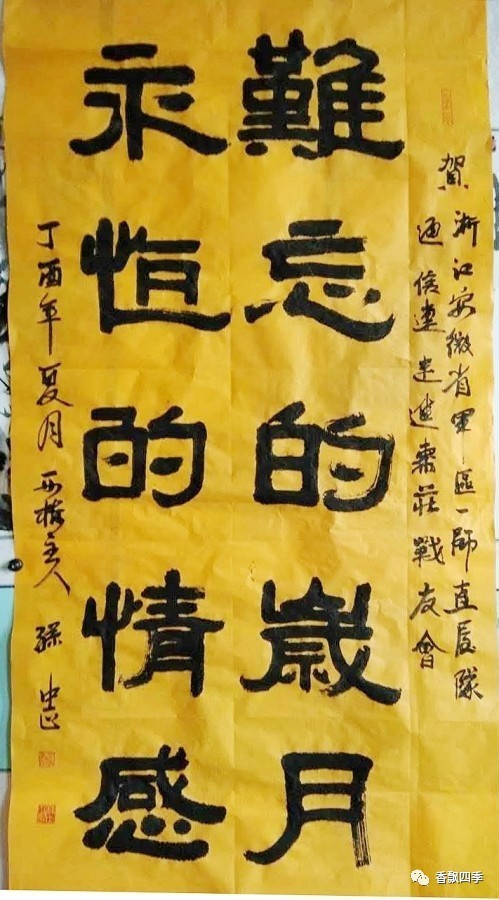 賀浙江安徽省軍區一師直屬隊
通信連走進棗莊戰友會
難忘的歲月
永恒的情感
丁酉年夏月 主人 孫
香飘四季